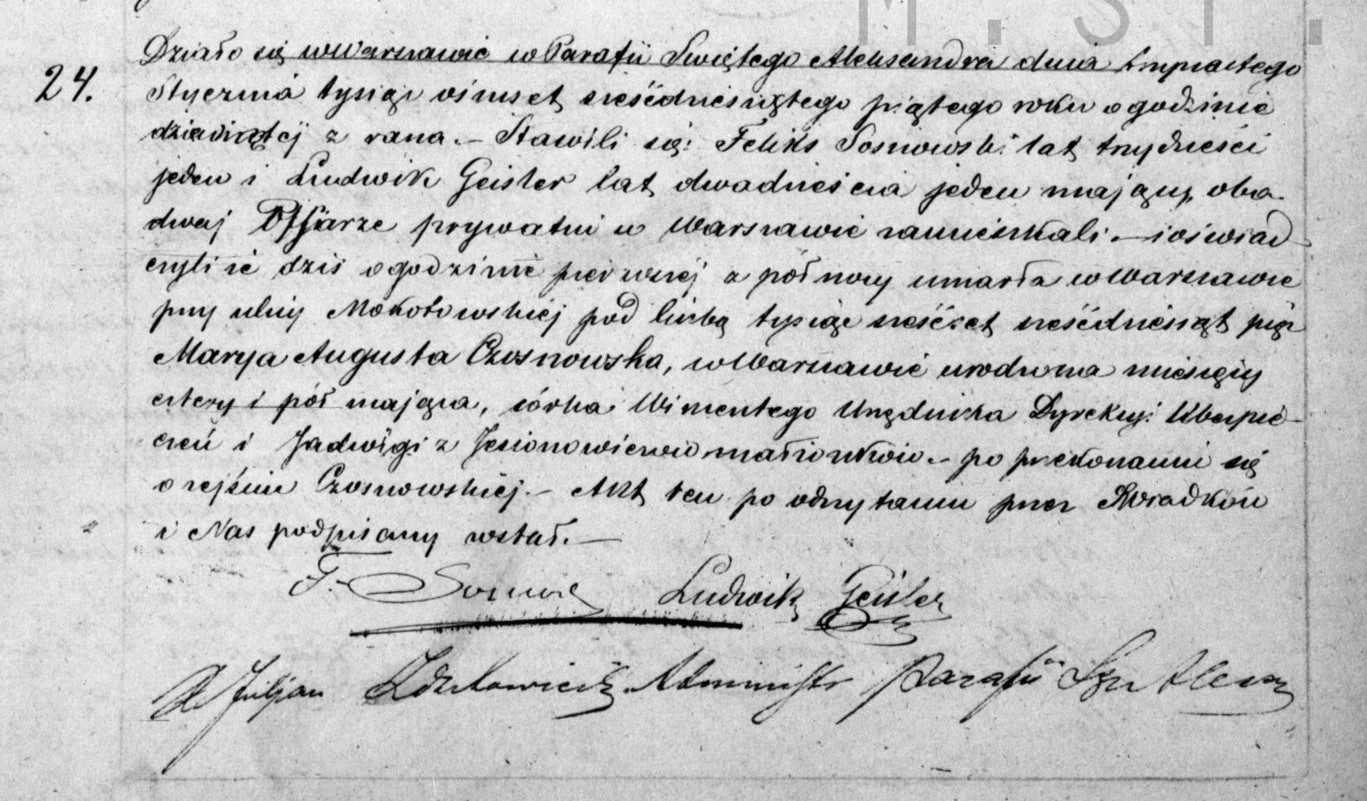 M. ST.
24.
Działo się w Warszawie w Parafii Swiętego Aleksandra dnia trzynastego
Stycznia tysiąc ośmset sześćdziesiątego piątego roku o godzinie
dziewiątej z rana.– Stawili się: Feliks Sosnowski lat trzydzieści
jeden i Ludwik Geisler lat dwadzieścia jeden mający, oba
dwaj prywatni w Warszawie zamieszkali.– i oświad
czyli że dziś o godzinie pierwszéj z północy umarła w Warszawie
przy ulicy Mokotowskiéj pod liczbą tysiąc sześćset sześćdziesiąt pięć
Marya Augusta Czosnowska, w Warszawie urodzona miesięcy
cztery i pół mająca, córka Wincentego Urzędnika Dyrekcyi Ubezpie
czeń i Jadwigi z małżonków.– po przekonaniu się
o zejściu Czosnowskiéj.– Akt ten po odczytaniu przez Swiadków
i Nas podpisany został.–
F. Ludwik Geisler
X Juljan Administr Parafii